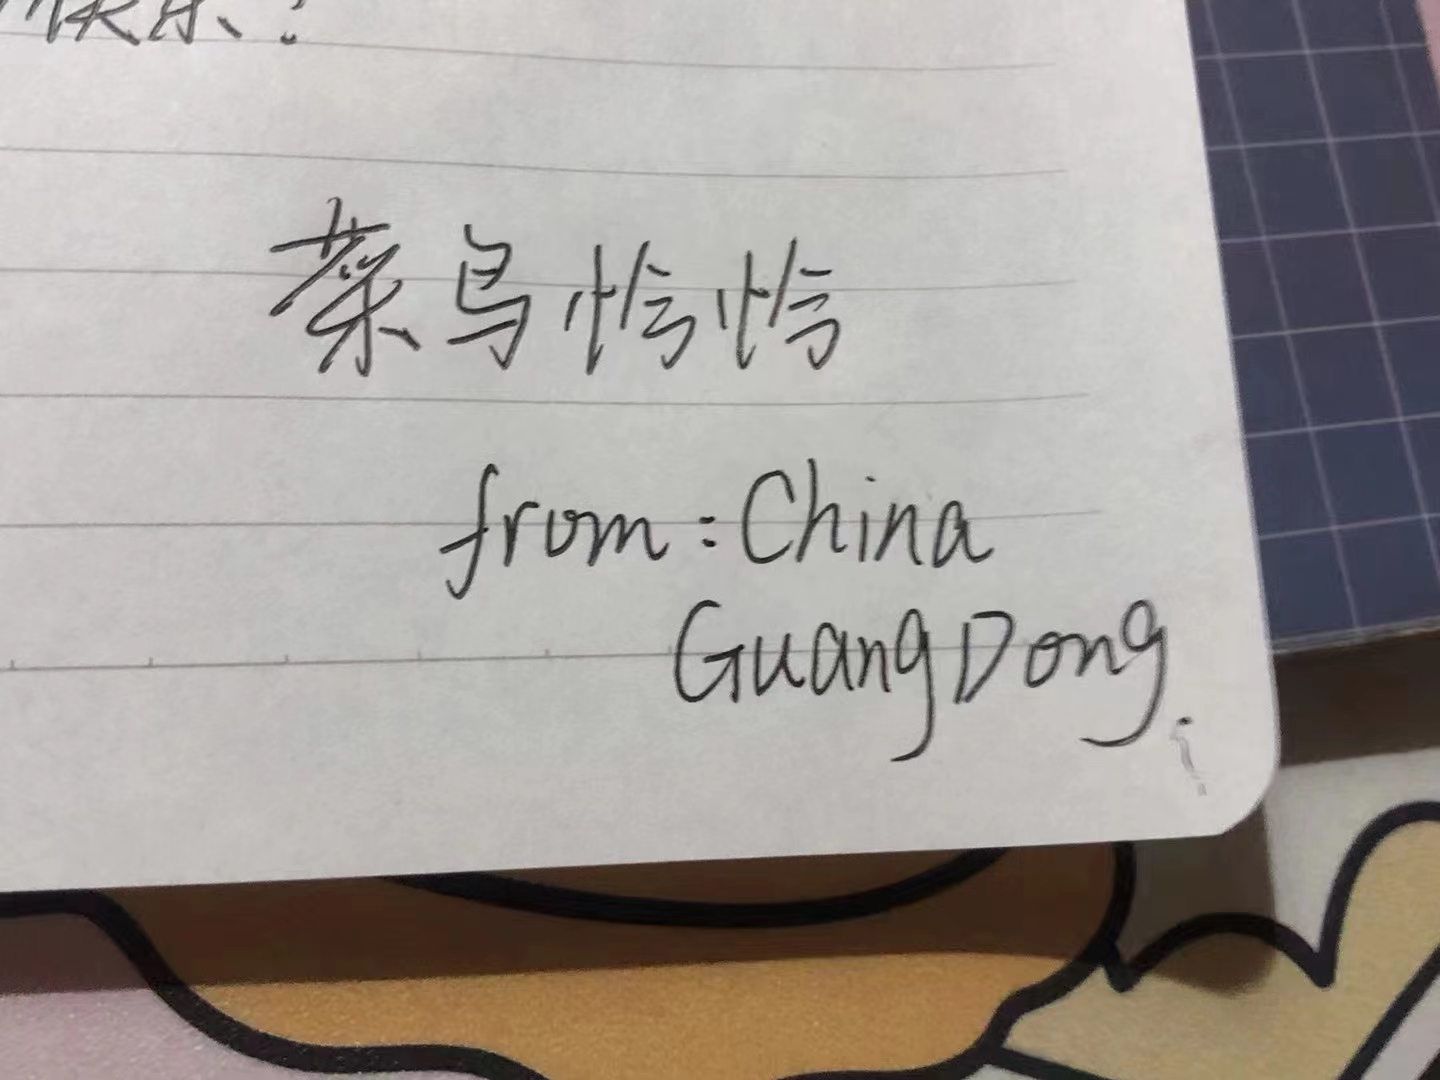 快乐!
菜鸟恰恰
from:China
GuangDong.